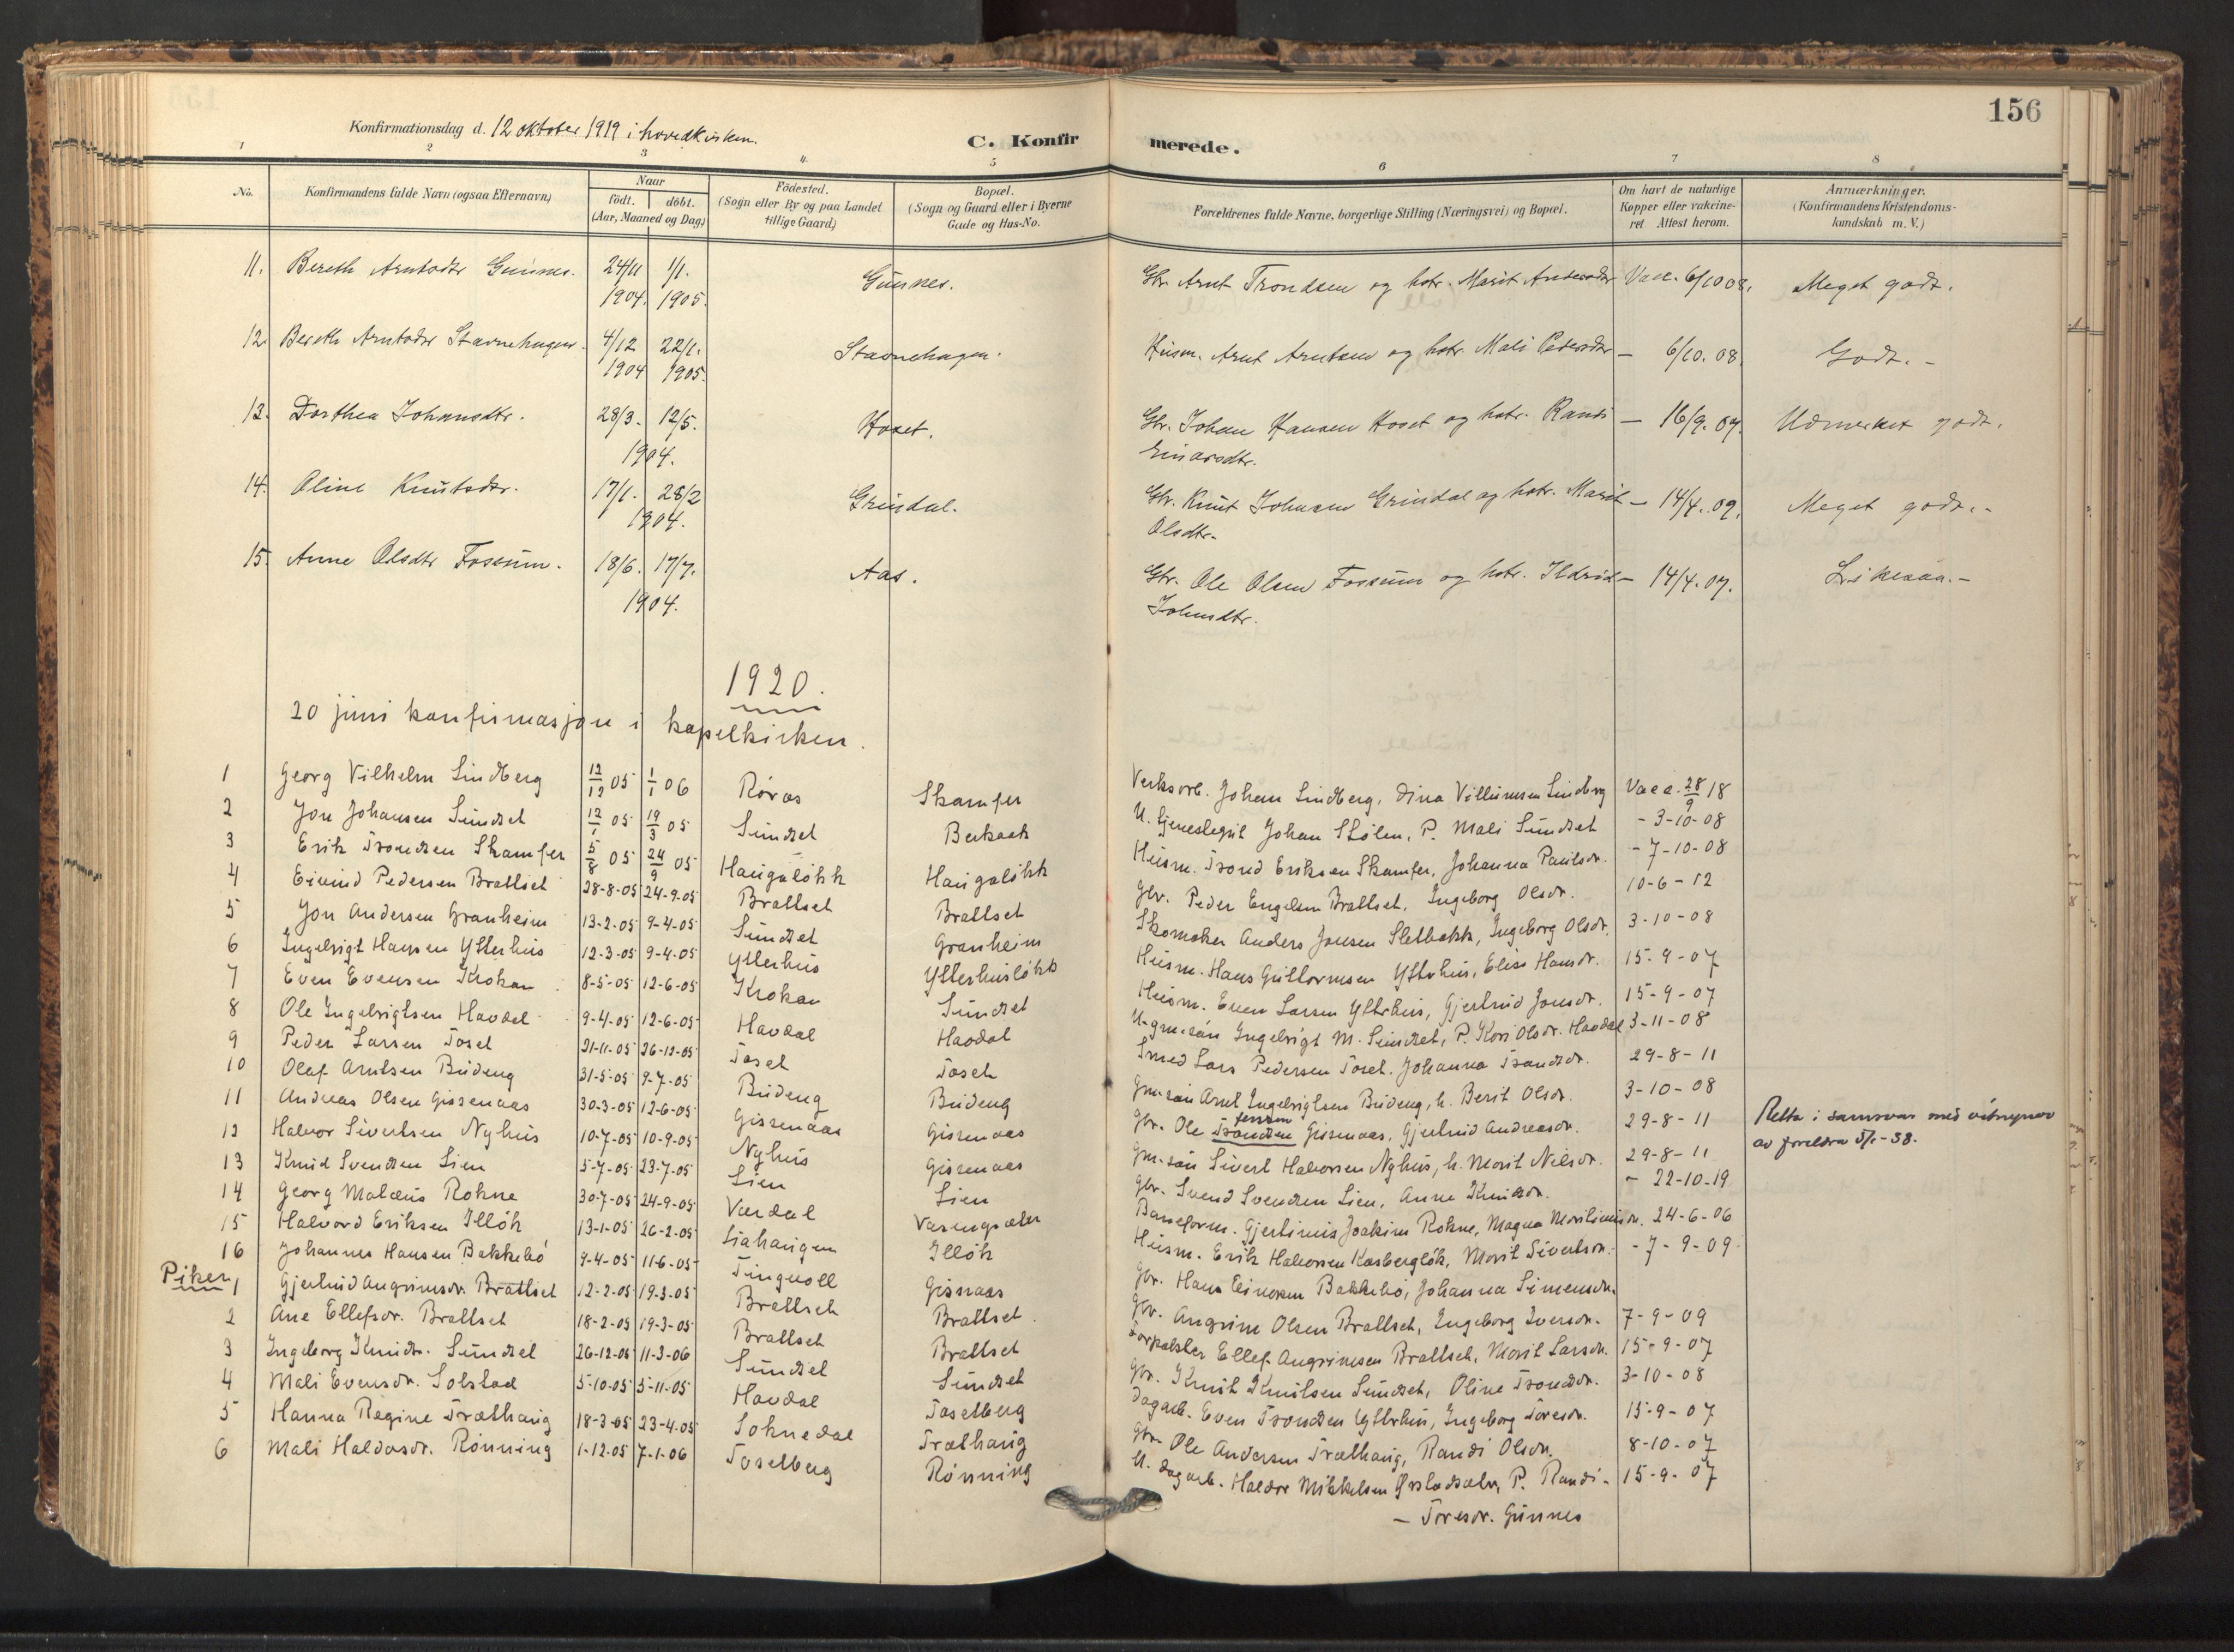 156
Konfirmationsdag d. 12 oktober 1919 i hovedkirken.
C. Konfirmerede.
1 2 3 4 5 6 7 8
No.
Konfirmandens fulde Navn (ogsaa Efternavn)
Naar
födt. döbt.
(Aar, Maaned og Dag)
Födested.
(Sogn eller By og paa Landet
tillige Gaard)
Bopæl.
(Sogn og Gaard eller i Byerne
Gade og Hus-No.
Forældrenes fulde Navne, borgerlige Stilling (Næringsvei) og Bopæl.
Om havt de naturlige
Kopper eller vakcine-
ret Attest herom.
Anmærkninger.
(Konfirmandens Kristendoms-
kundskab m. V.)
11. Bereth Arntsdtr Gunnes. 24/11 1904. 1/1. 1905. Gunnes. Gbr. Arnt Trondsen og hstr. Marit Vacc. 6/10 08. Meget godt.
12. Bereth Arntsdtr Stavnehagen. 4/12 1904 22/1. 1905. Stavnehagen. Husm. Arnt Arntsen og hstr. Mali Pedersdtr — 6/10. 08. Godt. -
13. Dorthea Johansdtr. 28/3. 12/5. 1904. Hoset. Gbr. Johan Hansen Hoset og hstr. Randi — 16/9. 07. Udmerket godt.
Einarsdtr.
14. Oline Knutsdtr. 17/1. 28/2 1904. Grindal. Gbr. Knut Johnsen Grindal og hstr. Marit — 14/4. 09. Meget godt. -
Olsdtr.
15. Anne Olsdtr Fossum. 18/6. 17/7. 1904. Aas. Gbr. Ole Olsen Fossum og hstr. Ildrid — 14/4. 07. Likesaa. -
Johnsdtr.
1920.
20 juni konfirmasjon i kapelkirken.
1 Georg Vilhelm Lindberg 12/12 05 1/1 06 Röros Skamfer Verksarb. Johan Lindberg, Dina Villumsen Lindberg Vacc. 28/9 18
2 Jon Johansen Sundset 12/1 05 19/3 05 Sundset Berkaak U. Johan Stölen, P. Mali Sundset - 3-10-08
3 Erik Trondsen Skamfer 5/8 05 24/9 05 Haugalökk Haugalökk Husm. Trond Eriksen Skamfer, Johanna Paulsdr. - 7-10-08
4 Eivind Pedersen Brattset 28-8-05 24-9-05 Brattset Brattset Gbr. Peder Engelsen Brattset, Ingeborg Olsdr. 10-6-12
5 Jon Andersen Granheim 13-2-05 9-4-05 Sundset Granheim Skomaker Anders Jonsen Sletbakk, Ingeborg Olsdr. 3-10-08
6 Ingebrigt Hansen Ytterhus 12-3-05 9-4-05 Ytterhus Ytterhuslökk Husm. Hans Guttormsen Ytterhus, Elise Hansdr. 15-9-07
7 Even Evensen Krokan 8-5-05 12-6-05 Krokan Sundset Husm. Even Larsen Ytterhus, Gjertrud Jonsdr. 15-9-07
8 Ole Ingebrigtsen Havdal 9-4-05 12-6-05 Havdal Havdal U-gm.sön Ingebrigt M. Sundset, P. Kari Olsdr. Havdal 3-11-08
9 Peder Larsen Toset 21-11-05 26-12-05 Toset Toset Smed Lars Pedersen Toset, Johanna Trondsdr. 29-8-11
10 Olaf Arntsen Budeng 31-5-05 9-7-05 Budeng Budeng Gm.sön Arnt Ingebrigtsen Budeng, h. Berit Olsdr. 3-10-08
11 Andreas Olsen Gissenaas 30-3-05 12-6-05 Gissenaas Gissenaas Gbr. Ole Trondsen Gissenaas, Gjertrud Andreasdr. 29-8-11 Retta i samsvar med vitnemov
av foreldra 5/1-38.
12 Halvor Sivertsen Nyhus 10-7-05 10-9-05 Nyhus Gissenaas Gm.sön Sivert Halvorsen Nyhus, h. Marit Nilsdr. 29-8-11
13 Knud Svendsen Lien 5-7-05 23-7-05 Lien Lien Gbr. Svend Svendsen Lien, Anne Knudsdr. - 22-10-19
14 Georg Malæus Rokne 30-7-05 24-9-05 Værdal Vasengsæter Baneform. Gjertinius Joakim Rokne, Magna 24-6-06
15 Halvord Eriksen Illök 13-1-05 26-2-05 Liahaugen Illök Husm. Erik Halvorsen Kasberglök, Marit Sivertsdr. - 7-9-09
16 Johannes Hansen Bakkebö 9-4-05 11-6-05 Tingvoll Gisnaas Gbr. Hans Einarsen Bakkebö, Johanna Simensdr.
Piker
1 Gjertrud Angrimsdr. Brattset 12-2-05 19-3-05 Brattset Brattset Gbr. Angrim Olsen Brattset, Ingeborg Iversdr. 7-9-09
2 Ane Ellefsdr. Brattset 18-2-05 19-3-05 Brattset Brattset Ellef Angrimsen Brattset, Marit Larsdr. 15-9-07
3 Ingeborg Knudsdr. Sundset 26-12-05 11-3-06 Sundset Sundset Gbr. Knut Knutsen Sundset, Oline Trondsdr. 3-10-08
4 Mali Evensdr. Solstad 5-10-05 5-11-05 Havdal Tosetberg Dagarb. Even Trondsen Ytterhus, Ingeborg Toresdr. 15-9-07
5 Hanna Regine Træthaug 18-3-05 23-4-05 Soknedal Træthaug Gbr. Ole Andersen Træthaug, Randi Olsdr. 8-10-07
6 Mali Haldosdr. Rönning 1-12-05 7-1-06 Tosetberg Rönning U. dagarb. Haldor Mikkelsen P. Randi - 15-9-07
— Toresdr. Gunnes